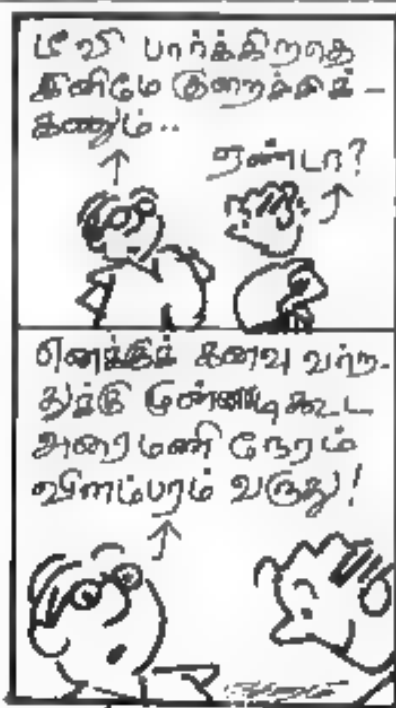 டீ வி பார்க்கிறதை
இனிமே குறைச்சிக்-
கணும்..
ஏண்டா?
எனக்குக் கனவு வர்ற-
துக்கு முன்னாடி கூட
அரை மணி நேரம்
விளம்பரம் வருது!